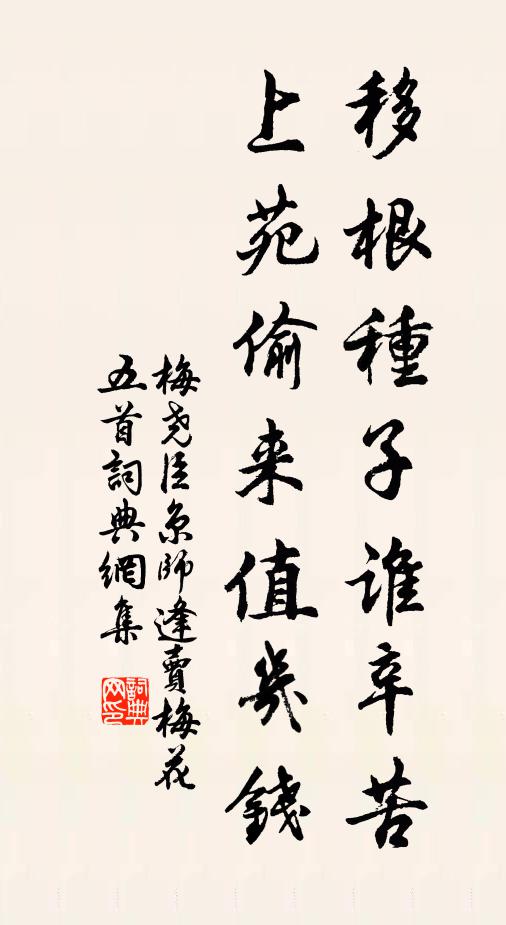 移根種子誰辛苦
上苑偷来值幾錢
梅尧臣京師逢賣梅花
五首詞典網集
詞典
网印